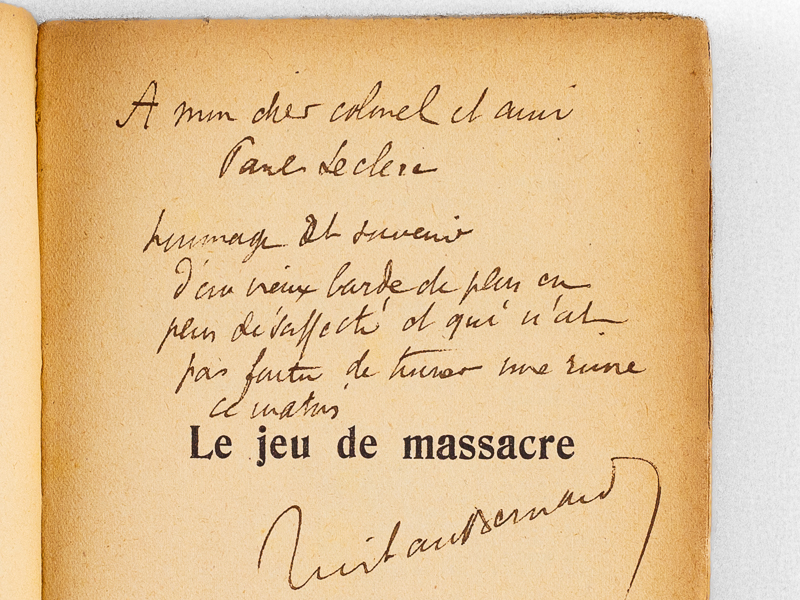 A mon cher colonel et ami
Paul Leclerc
hommage et souvenir
d'un vieux barde de plus en
plus désaffecté et qui n'est
pas foutu de trouver une rime
ce matin
Le jeu de massacre
Tristan Bernard